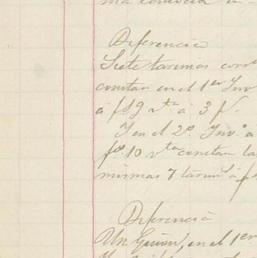 Diferencia
Siete tarimas con
constan en el 1er Inv
á fs 9 vta á 3 f.
Y en el 2º. Inv.º a
fs. 10 vta constan la
mismas 7 tarim.s á f
Diferencia
Un Guion, en el 1er